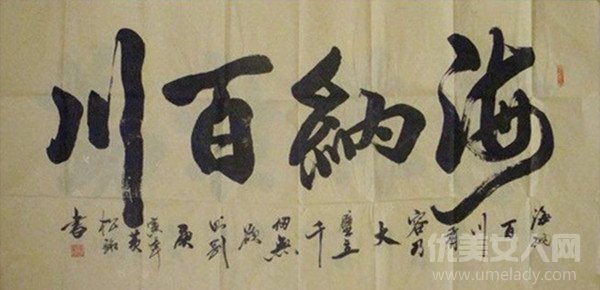 海納百川
海纳百川有容乃大壁立千仞無欲则刚庚寅年黄松书
优美女人网
www.umelady.com